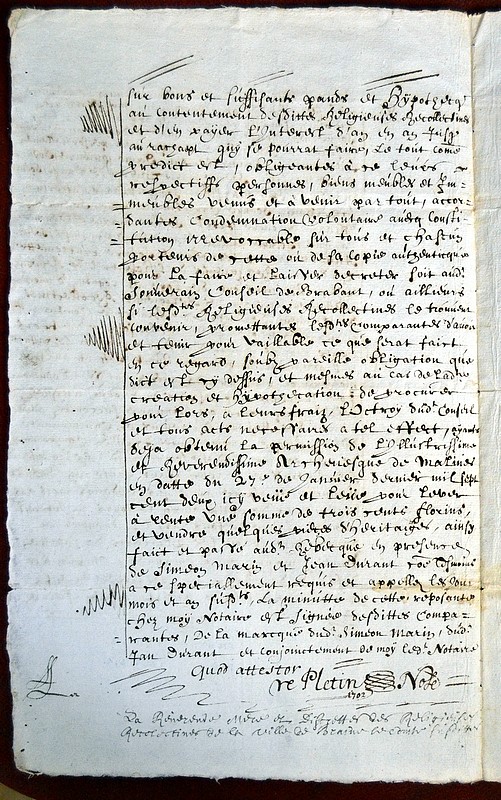 sur bons et suffisants pands et Hÿpothecq
au contentement desdittes Religieuses Recollectines
et d'en payer l'Interest d'an en an jusq
au rachapt quy se pourrat faire, Le tout come
predict est, obligeantes a ce leurs
respectiffs personnes, biens meubles et Im=
meubles venus et a venir par tout, accor=
dantes Condemnation volontaire avecq Consti=
tution irrevoccable sur tous et chascun
porteurs de cette ou de sa copie authenticque
pour La faire et Laisser decreter soit aud.t
Souverain Conseil de Brabant, ou ailleurs
si lesd.tes Religieuses Recollectines le trouvent
convenir, promettantes lesd.tes Comparantes d'avoir
et tenir pour vaillable ce que serat faict
en ce regard, soubz pareille obligation que
dict est cy dessus, et mesmes au cas de ladte
creation et hÿpothecation de procurer
pour lors, a leurs fraix, L'Octroy dud.t Conseil
et tous acts necessaires a tel effect, ayants
deja obtenu la permission de L'Illustrissime
et Reverendissime Archevesque de Malines
en datte du 27.e de Janvier dernier mil sept
cent deux icy veue et leue pour lever
a rente une somme de trois cents florins,
et vendre quelques pieces d'heritaiges, ainsy
faict et passé aud.t Rebecque en presence
de Simeon Marin et Jean Durant coe tesmoins
a ce speciallement requis et appellez les jour
mois et an susd.ts, La minutte de cette, reposante
chez moy Notaire est signée desdittes Compa=
rantes, De la marcque dud.t Simeon Marin, dud.t
Jan Durant et conjoinctement de moy led.t Notaire
Quod attestor
Pletin Not.
1702
La Reverende Mere et Discrettes des Religieuses
Recolectines de la ville de Braine le Comte